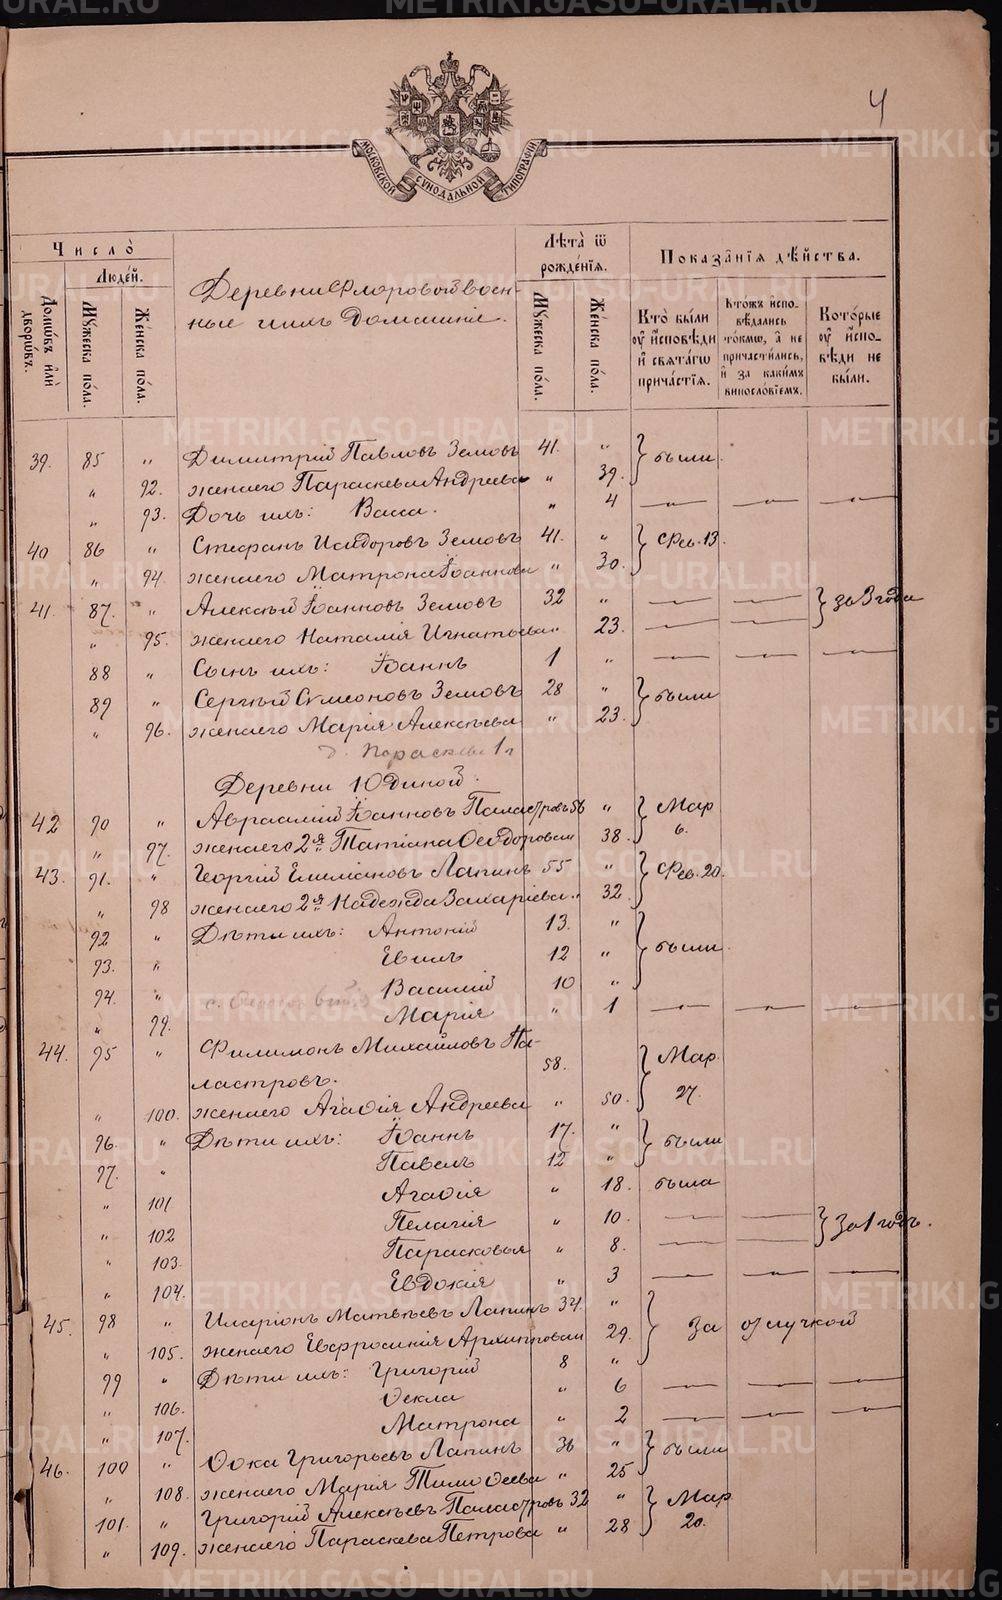 4
МОСКОВСКОЙ СѴНОДАЛЬНОЙ ТИПОГРАФІИ
Число̀
Людéй.
Домѡ́въ и҆лѝ дворѡ́въ.
Мꙋ́жеска по́ла.
Же́нска по́ла.
Деревни Флоровой воен-
ные и ихъ домашние.
Лѣ̑та ѿ рождéнїѧ.
Мꙋ́жеска по́ла.
Же́нска по́ла.
Показа̑нїѧ дѣ́йства.
Кто̀ бы́ли оу҆ и҆сповѣ́ди и҆ свѧта́гѡ прича́стїѧ.
Кто́жъ и҆спо-вѣ́дались то́кмѡ, а҆ не причасти́лись, и҆ за каки́мъ винослóвїемъ.
Кото́рые оу҆ и҆спо-вѣ́ди не бы́ли.
39. 85 " Димитрій Павловъ Земовъ 41. " были
" 92. жена его Параскева Андреева " 39.
" 93. Дочь ихъ: Васса. " 4 — — —
40 86 " Стефанъ Исидоровъ Земовъ 41. " Фев. 13.
" 94. жена его Матрона Іоаннова " 30.
41. 87. " Алексѣй Іоанновъ Земовъ 32 " — — за 3 года
" 95. жена его Наталія Игнатьева " 23. — —
88 " Сынъ ихъ: Іоаннъ 1 " — — —
89 " Сергѣй Сѵмеоновъ Земовъ 28 " были
" 96. жена его Марія Алексѣева " 23.
д. Параскева 1 г
Деревни Юдиной.
42 90 " Авраамій Іоанновъ Паластровъ 56 " Мар 6.
" 97. жена его 2я Татіана Ѳеодоровая 38.
43. 91. " Георгій Емеліановъ Лапинъ 55 " Фев. 20.
" 98 жена его 2я Надежда Захаріева " 32
92 " Дѣти ихъ: Антоній 13. " были
93. " Евилъ 12 "
94. " Василій 10 "
" 99. Марія " 1 — — —
44. 95 " Филимонъ Михайловъ Па-
ластровъ. 58. Мар. 27.
" 100. жена его Агаѳія Андреева " 50.
96. " Дѣти ихъ: Іоаннъ 17. " были
97. " Павелъ 12 "
" 101 Агаѳія " 18. была
" 102 Пелагія " 10 — — за 1 годъ.
" 103. Парасковья " 8. — —
" 104. Евдокія " 3 — — —
45. 98 " Иларіонъ Матвѣевъ Лапинъ 34. " за отлучкой
" 105. жена его Евфросинія Архиппова 29.
99 " Дѣти ихъ: Григорій 8 "
" 106. Ѳекла " 6 — — —
" 107. Матрона " 2 — — —
46. 100 " Ѳока Григорьевъ Лапинъ 36 " были
" 108. жена его Марія Тимоѳеева " 25
101. " Григорій Алексѣевъ Паластровъ 32 " Мар 20.
" 109. жена его Параскева Петрова " 28
METRIKI.GASO-URAL.RU